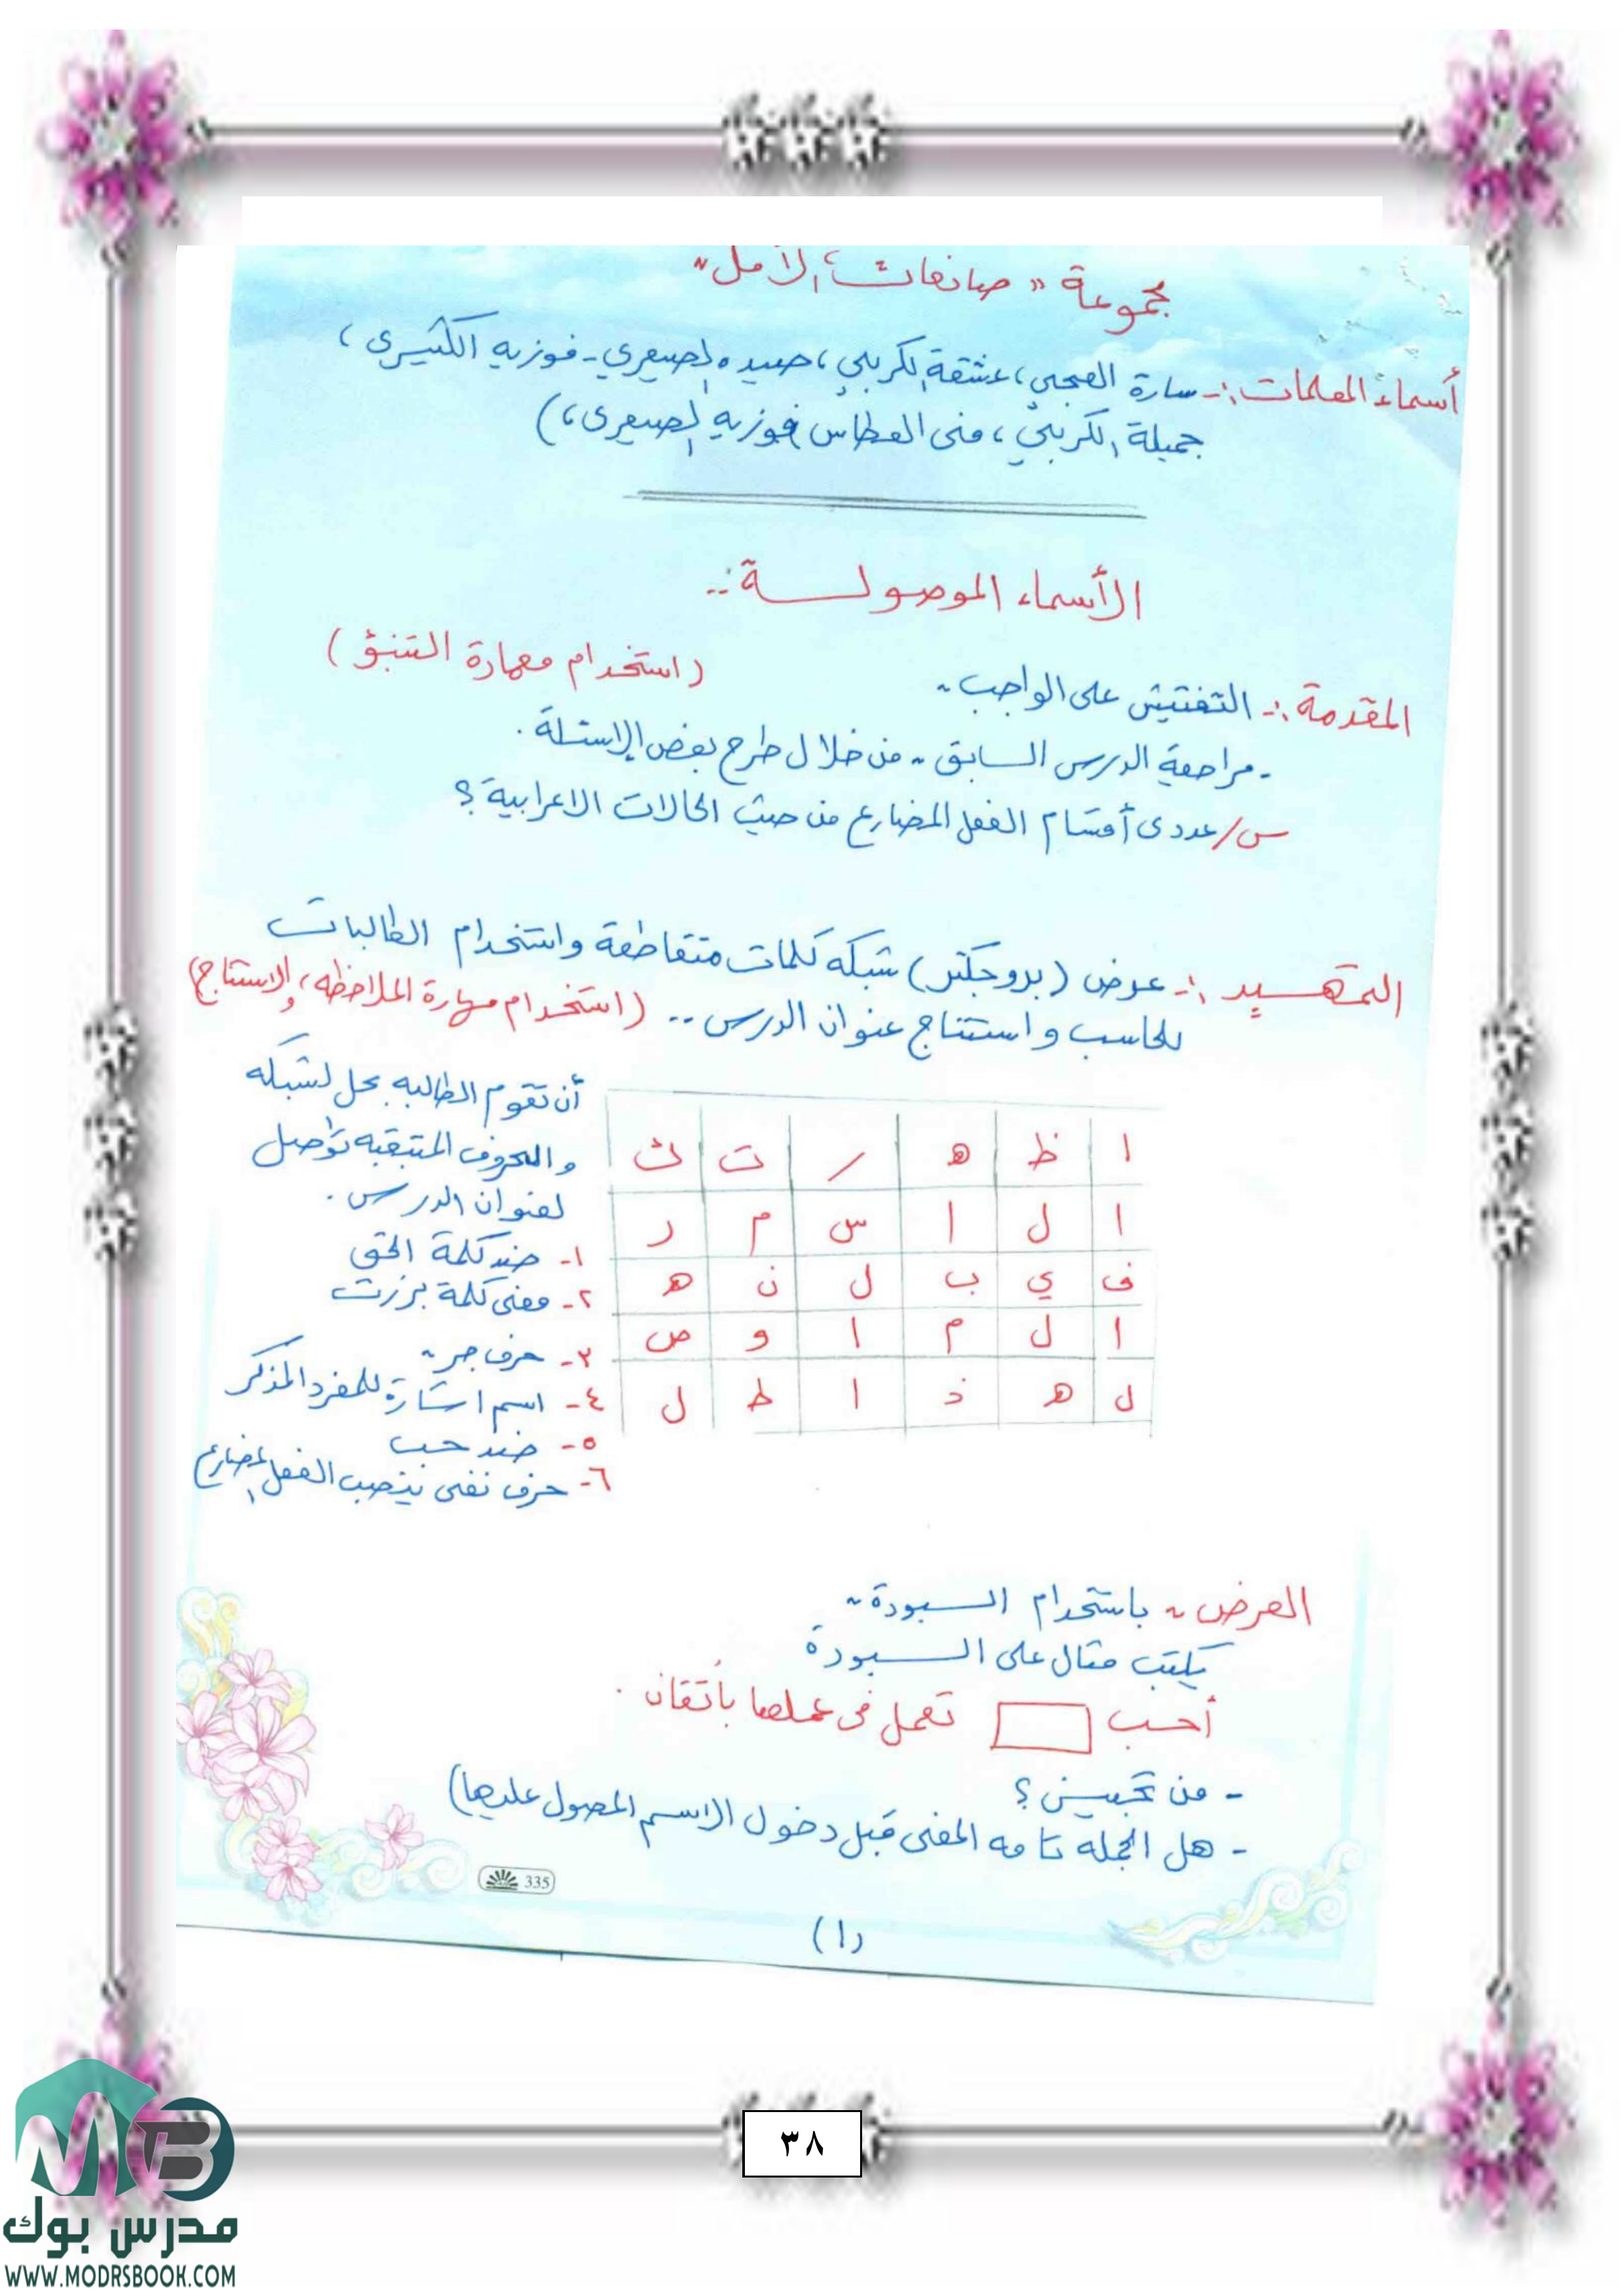 مجموعة " صانعات الأمل "
أسماء المعلمات :- سارة العجمي ، عشقة الكربي ، صيده الصيعري - فوزيه الكثيري ،
جميلة الكربي ، منى العطاس فوزيه الصيعرى ، )
الأسماء الموصولــــة :..
( استخدام مهارة التنبؤ )
المقدمة :- التفتيش على الواجب .
- مراجعة الدرس السابق . من خلال طرح بعض الاسئلة .
س/ عددى أقسام الفعل المضارع من حيث الحالات الاعرابية ؟
التمهــيد :- عرض (بروجكتر) شبكه كلمات متقاطعة واستخدام الطالبات
للحاسب و استنتاج عنوان الدرس .. ( استخدام مهارة الملاحظه ، والاستنتاج )
أن تقوم الطالبه بحل الشبكه
والحروف المتبقيه تواصل
لعنوان الدرس .
١- ضد كلمة الحق
٢- معنى كلمة برزت
٣- حرف جر .
٤- اسم اشارة للمفرد المذكر
٥- ضد حب
٦- حرف نفى ينصب الفعل المضارع
ا ظ ه ر ت ث
ا ل ا س م ر
ف ي ب ل ن ه
ا ل م ا و ص
ل ه ذ ا ط ل
العرض . باستخدام الســـبورة .
يكتب مثال على الســـبورة
أحب تعمل فى عملها بأتقان .
- من تحبين ؟
- هل الجمله تامه المعنى قبل دخول الاسم المصول عليها )
335
(١)
٣٨
مدرس بوك
WWW.MODRSBOOK.COM